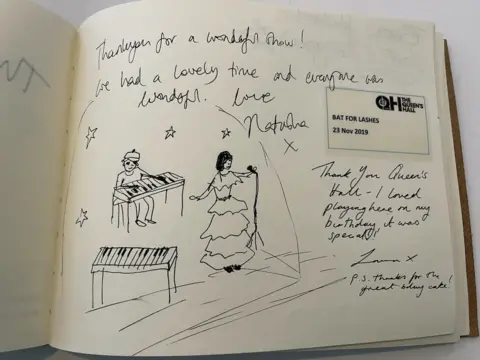 Thankyou for a wonderful show!
We had a lovely time and everyone was
wonderful. Love
Natasha
x
QH THE QUEEN'S HALL
BAT FOR LASHES
23 Nov 2019
Thank You Queen's
Hall - I loved
playing here on my
birthday it was
special!!
x
P.S. thanks for the
great bday cake!